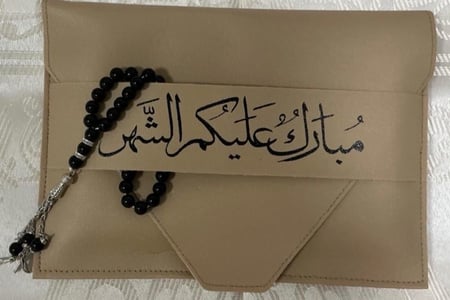 مُبَارَكٌ عَلَيْكُم الشَّهر